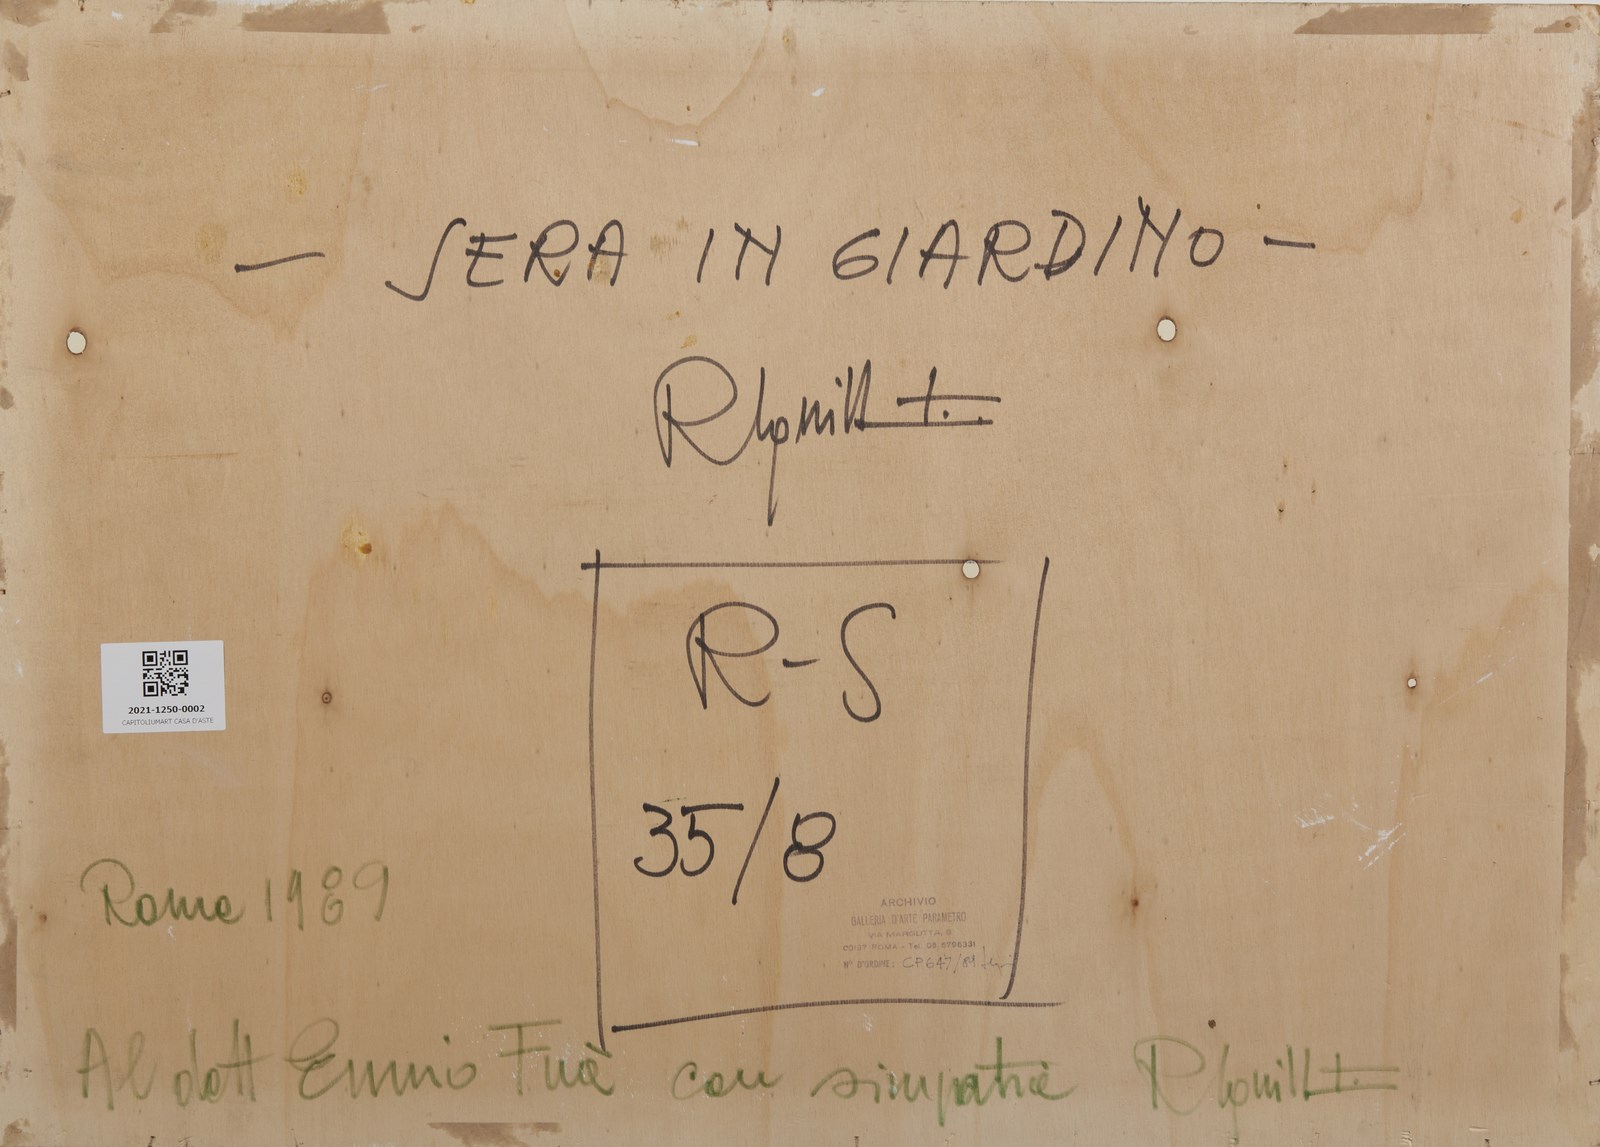 — SERA IN GIARDINO —
R-S
35/8
2021-1250-0002
CAPITOLIUMART CASA D'ASTE
Roma 1989
ARCHIVIO
GALLERIA D'ARTE PARAMETRO
VIA MARGUTTA, 8
00187 ROMA - Tel. 06, 6786331
N° D'ORDINE: CP 647/89
Al dott Ennio Fuà con simpatia